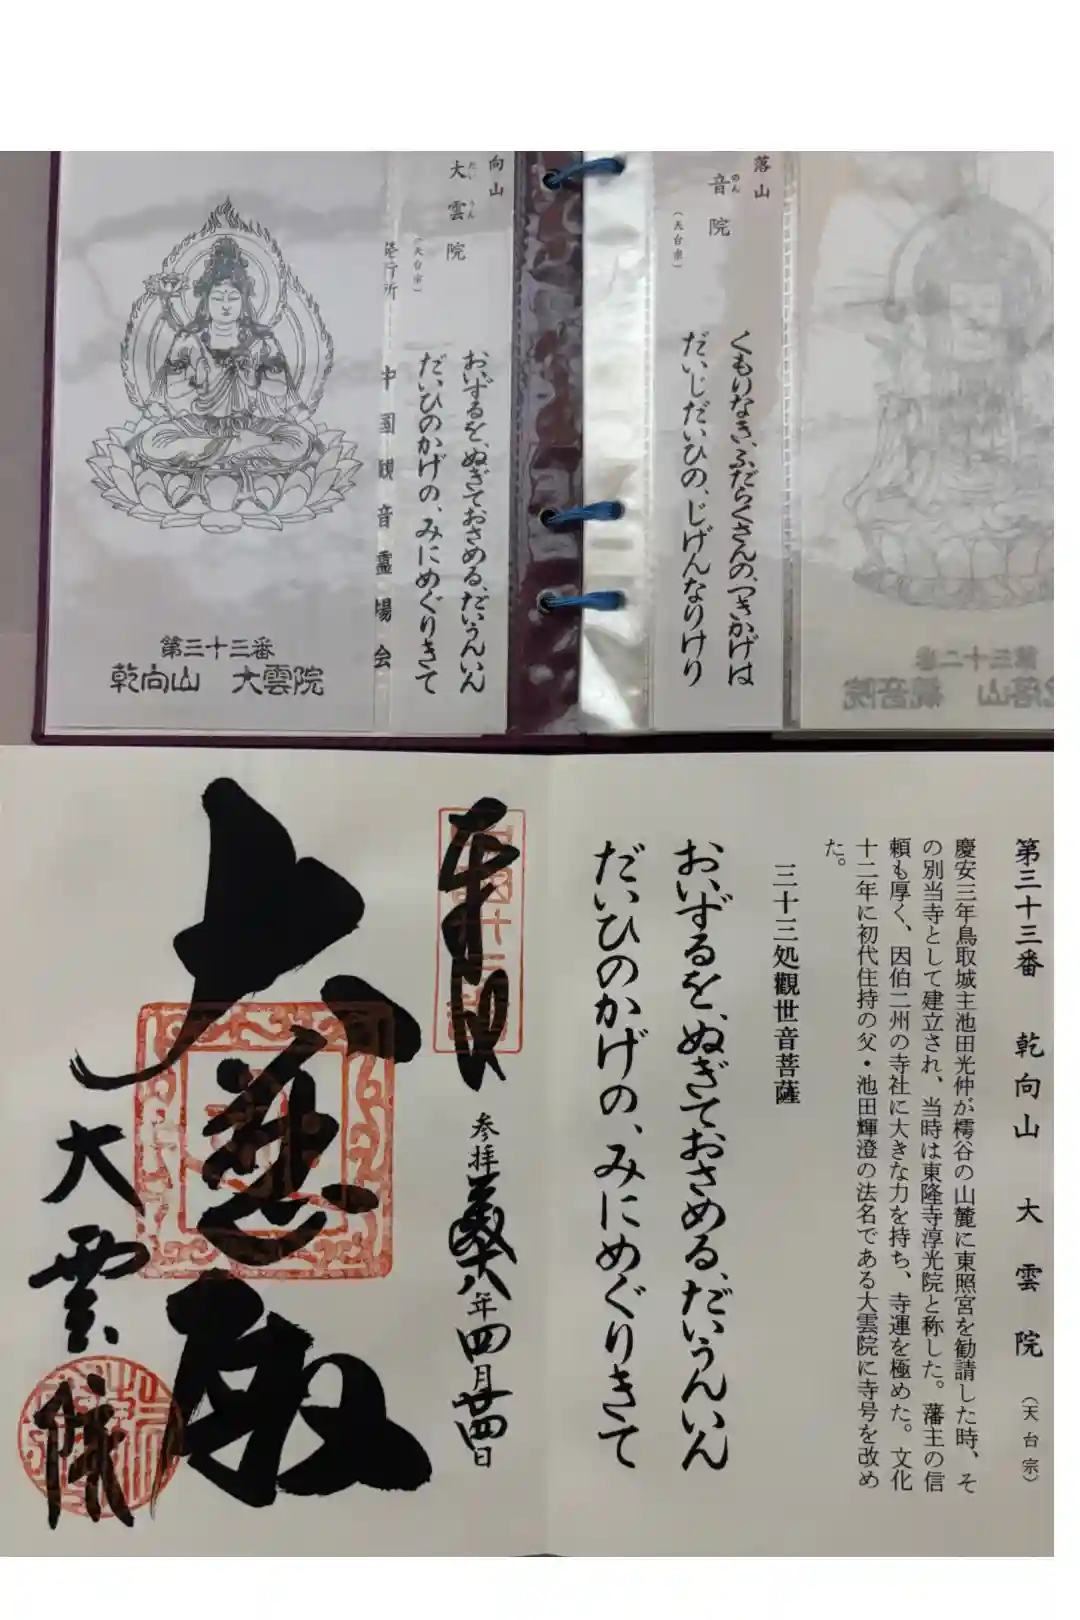 向山
大雲院
だい うん
（天台宗）
おいずるを、ぬぎておさめる、だいうんいん
だいひのかげの、みにめぐりきて
発行所 中国観音霊場会
第三十三番
乾向山 大雲院
落山
音院
のん
（天台宗）
くもりなき、ふだらくさんの、つきかげは
だいじだいひの、じげんなりけり
第三十二番
落山 観音院
第三十三番 乾向山 大雲院（天台宗）
慶安三年鳥取城主池田光仲が樗谷の山麓に東照宮を勧請した時、そ
の別当寺として建立され、当時は東隆寺淳光院と称した。藩主の信
頼も厚く、因伯二州の寺社に大きな力を持ち、寺運を極めた。文化
十二年に初代住持の父・池田輝澄の法名である大雲院に寺号を改め
た。
三十三処觀世音菩薩
おいずるを、ぬぎておさめる、だいうんいん
だいひのかげの、みにめぐりきて
奉拝
参拝 平成十八年四月廿四日
大悲殿
大雲院